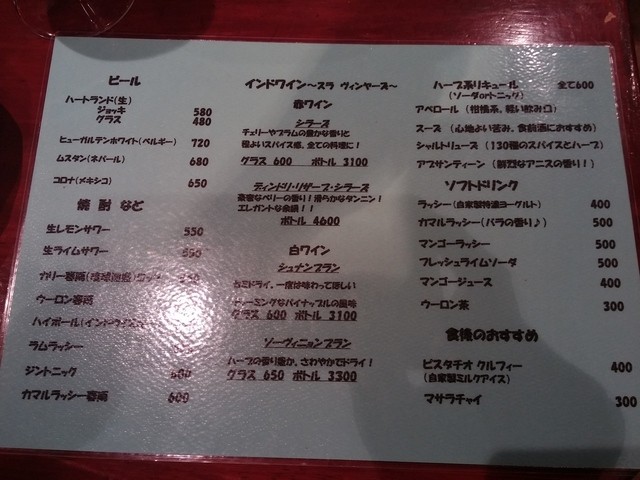 ビール
ハートランド(生)
ジョッキ 580
グラス 480
ヒューガルデンホワイト(ベルギー) 720
ムスタン(ネパール) 680
コロナ(メキシコ) 650
焼酎 など
生レモンサワー 550
生ライムサワー 550
ウーロン
ハイボール(インドウイ
ラムラッシー
ジントニック 600
カマルラッシー 600
インドワイン～スラ ヴィンヤーズ～
赤ワイン
シラーズ
チェリーやプラムの豊かな香りと
程よいスパイス感、全ての料理に!
グラス 600 ボトル 3100
ティンドリ・リザーブ・シラーズ
濃密なベリーの香り!滑らかなタンニン!
エレガントな余韻!!
ボトル 4600
白ワイン
シュナンブラン
セミドライ、一度は味わってほしい
チャーミングなパイナップルの風味
グラス 600 ボトル 3100
ソーヴィニョンブラン
ハーブの香り豊か、さわやかでドライ!
グラス 650 ボトル 3300
ハーブ系リキュール 全て600
(ソーダorトニック)
アペロール (柑橘系、軽い飲み口)
スーズ (心地よい苦み、食前酒におすすめ)
シャルトリューズ (130種のスパイスとハーブ)
アブサンティーン (鮮烈なアニスの香り!)
ソフトドリンク
ラッシー(自家製特濃ヨーグルト) 400
カマルラッシー(バラの香り♪) 500
マンゴーラッシー 500
フレッシュライムソーダ 500
マンゴージュース 400
ウーロン茶 300
食後のおすすめ
ピスタチオ クルフィー 400
(自家製ミルクアイス)
マサラチャイ 300